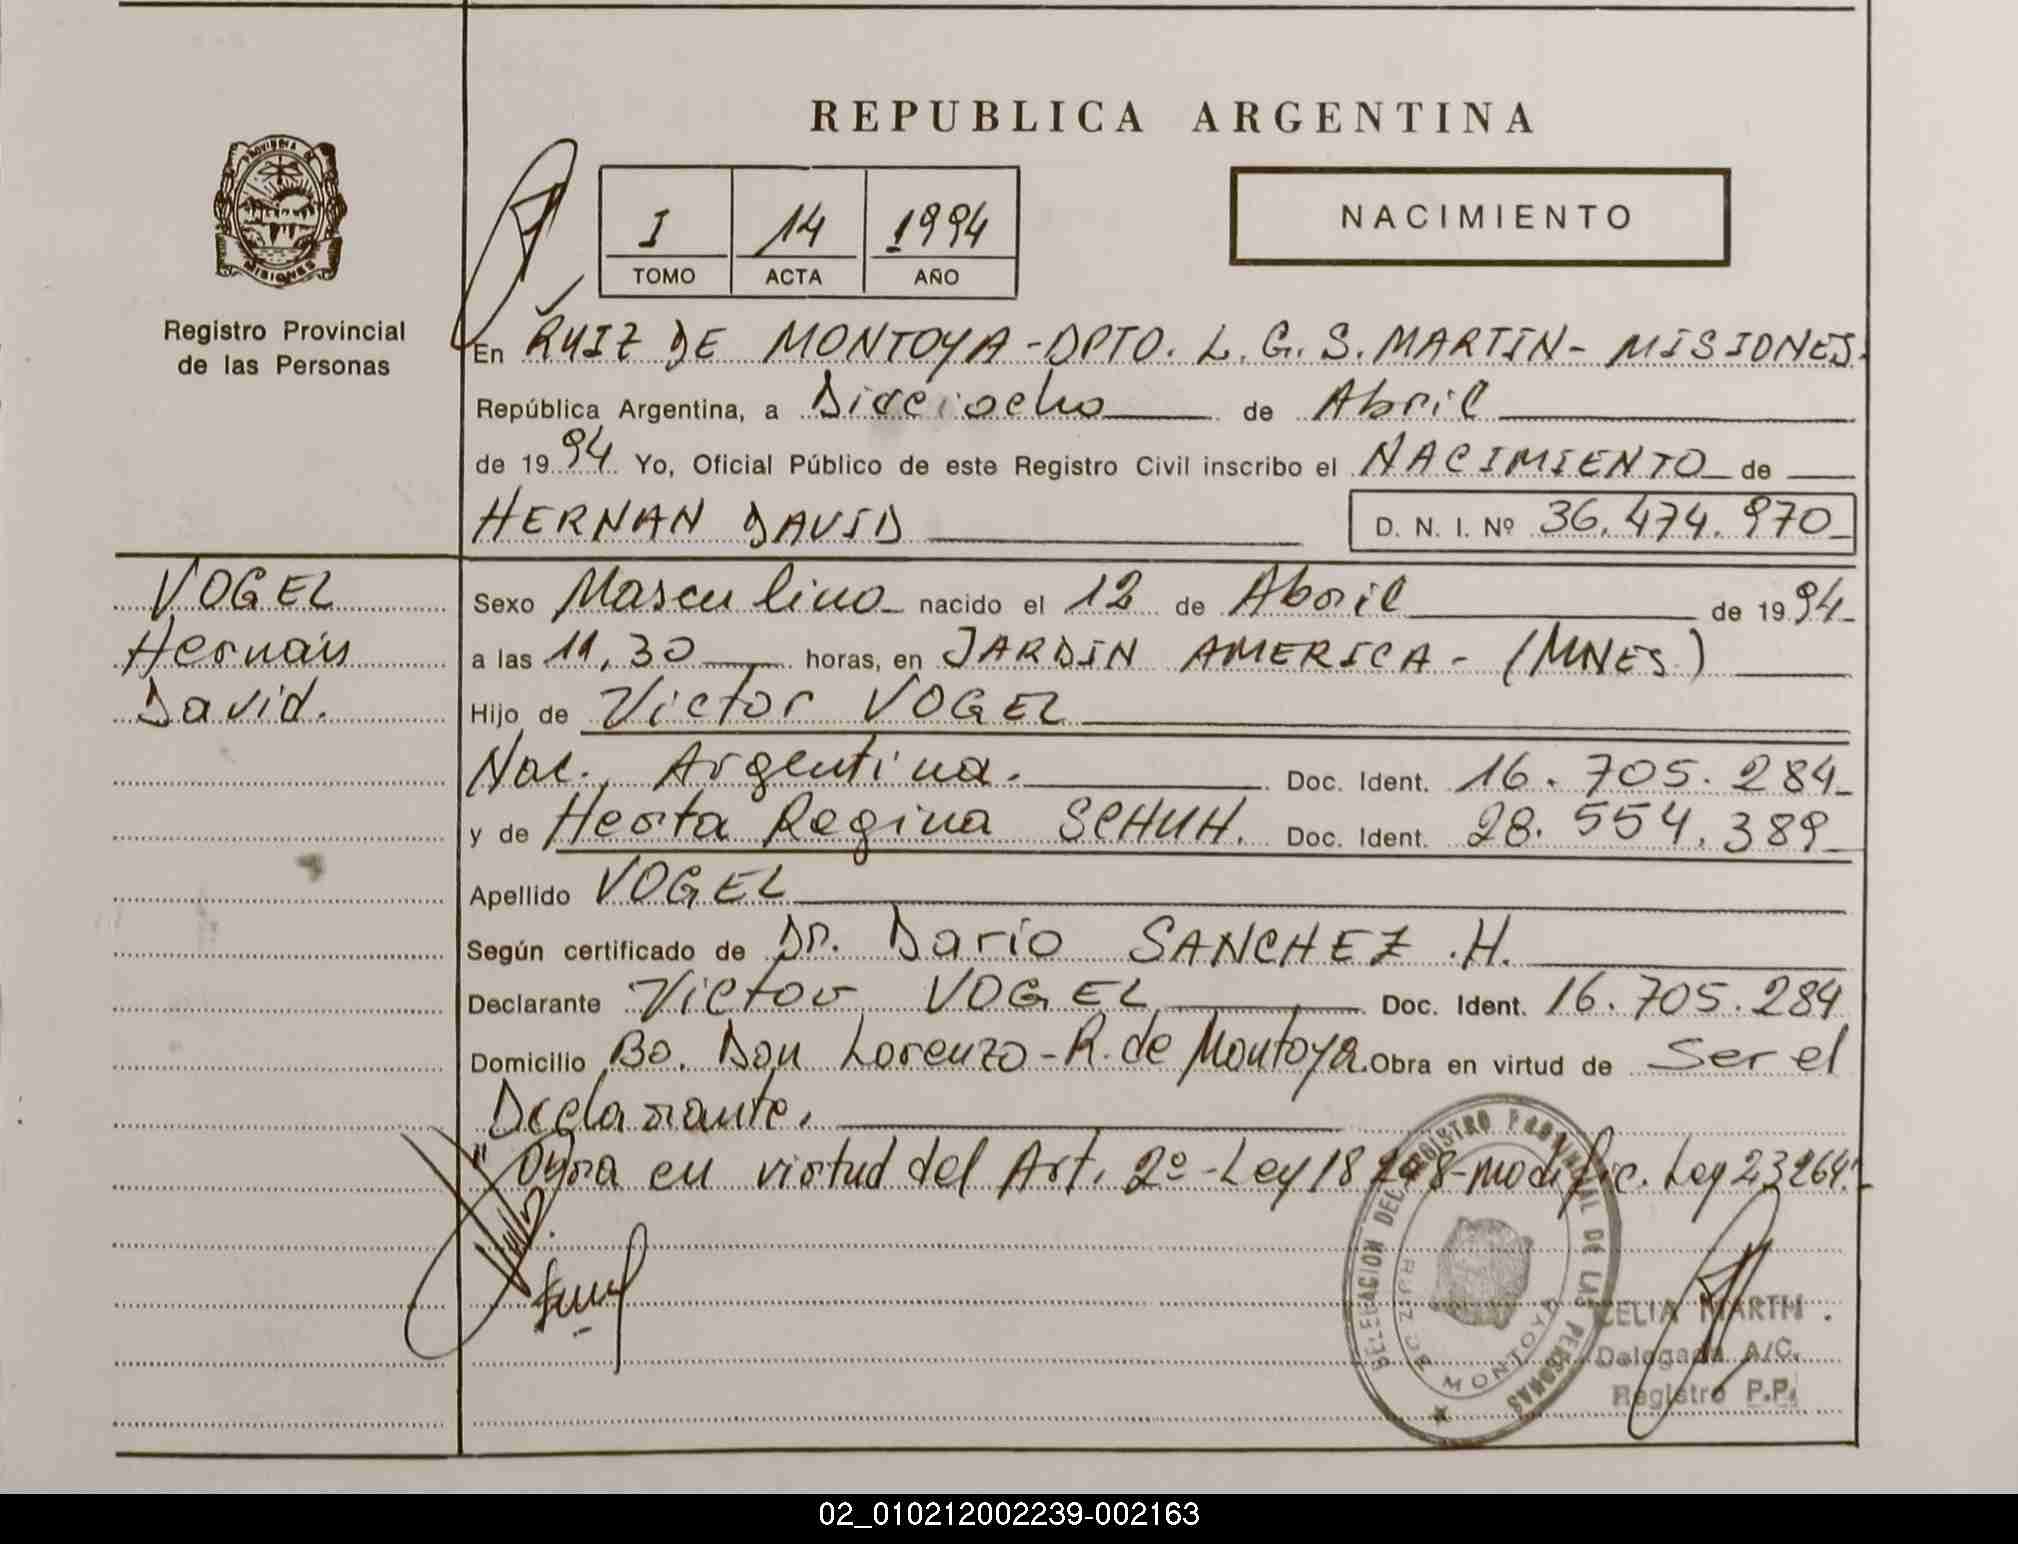 REPUBLICA ARGENTINA
PROVINCIA DE
MISIONES
Registro Provincial
de las Personas
I 14 1994
TOMO ACTA AÑO
NACIMIENTO
En RUIZ DE MONTOYA - DPTO. L. G. S. MARTIN - MISIONES.
República Argentina, a Dieciocho de Abril
de 1994 Yo, Oficial Público de este Registro Civil inscribo el NACIMIENTO de
HERNAN DAVID D. N. I. Nº 36.474.970
VOGEL
Hernán
David.
Sexo Masculino nacido el 12 de Abril de 1994
a las 11,30 horas, en JARDIN AMERICA - (MNES)
Hijo de Victor VOGEL
Nac. Argentina. Doc. Ident. 16.705.284
y de Herta Regina SCHUH. Doc. Ident. 28.554.389
Apellido VOGEL
Según certificado de Dr. Dario SANCHEZ .H.
Declarante Victor VOGEL Doc. Ident. 16.705.284
Domicilio Bo. Don Lorenzo - R. de Montoya. Obra en virtud de Ser el
Declarante.
"Obra en virtud del Art. 2º - Ley 18248 - modific. Ley 23264."
DELEGACION DEL REGISTRO PROVINCIAL DE LAS PERSONAS
RUIZ DE MONTOYA
CELIA MARTH
Delegada A/C.
Registro P.P.
02_010212002239-002163